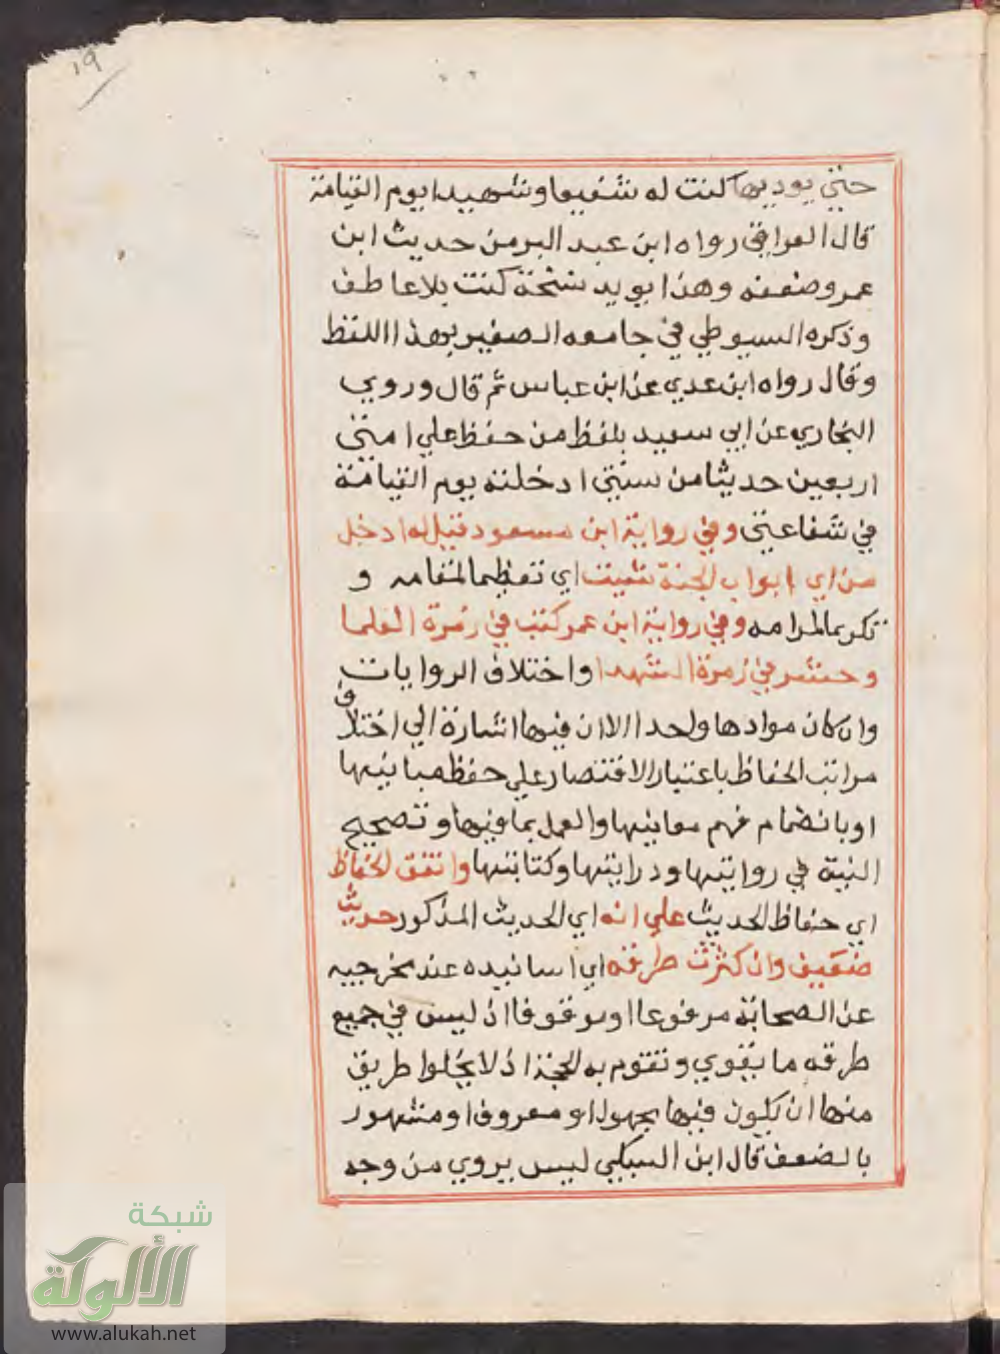 ١٩
حتي يوديها كنت له شفيعا وشهيدا يوم القيامة
قال العراقي رواه ابن عبد البر من حديث ابن
عمر وضعفه وهذا يويد نسخة كنت بلا عاطف
وذكره السيوطي في جامعه الصغير بهذا اللفظ
وقال رواه ابن عدي عن ابن عباس ثم قال وروي
البخاري عن ابي سعيد بلفظ من حفظ علي امتي
اربعين حديثا من سنتي ادخلته يوم القيامة
في شفاعتي وفي رواية ابن مسعود قيل له ادخل
من اي ابواب الجنة شيت اي تعظيما لمقامه و
تكريما لمرامه وفي رواية ابن عمر كتب في زمرة العلما
وحشر في زمرة الشهدا واختلاف الروايات
وان كان موادها واحدا الا ان فيها اشارة الي اختلاف
مراتب الحفاظ باعتبار الاقتصار علي حفظ مبانيها
او بانضمام فهم معانيها والعمل بما فيها وتصحيح
النية في روايتها ودرايتها وكتابتها واتفق الحفاظ
اي حفاظ الحديث علي انه اي الحديث المذكور حديث
ضعيف وان كثرت طرقه اي اسانيده عند مخرجيه
عن الصحابة مرفوعا او موقوفا اذ ليس في جميع
طرقه ما يقوي وتقوم به الحجة اذ لا يخلوا طريق
منها ان يكون فيها مجهول او معروف او مشهور
بالضعف قال ابن السبكي ليس يروي من وجه
شبكة
الألوكة
www.alukah.net